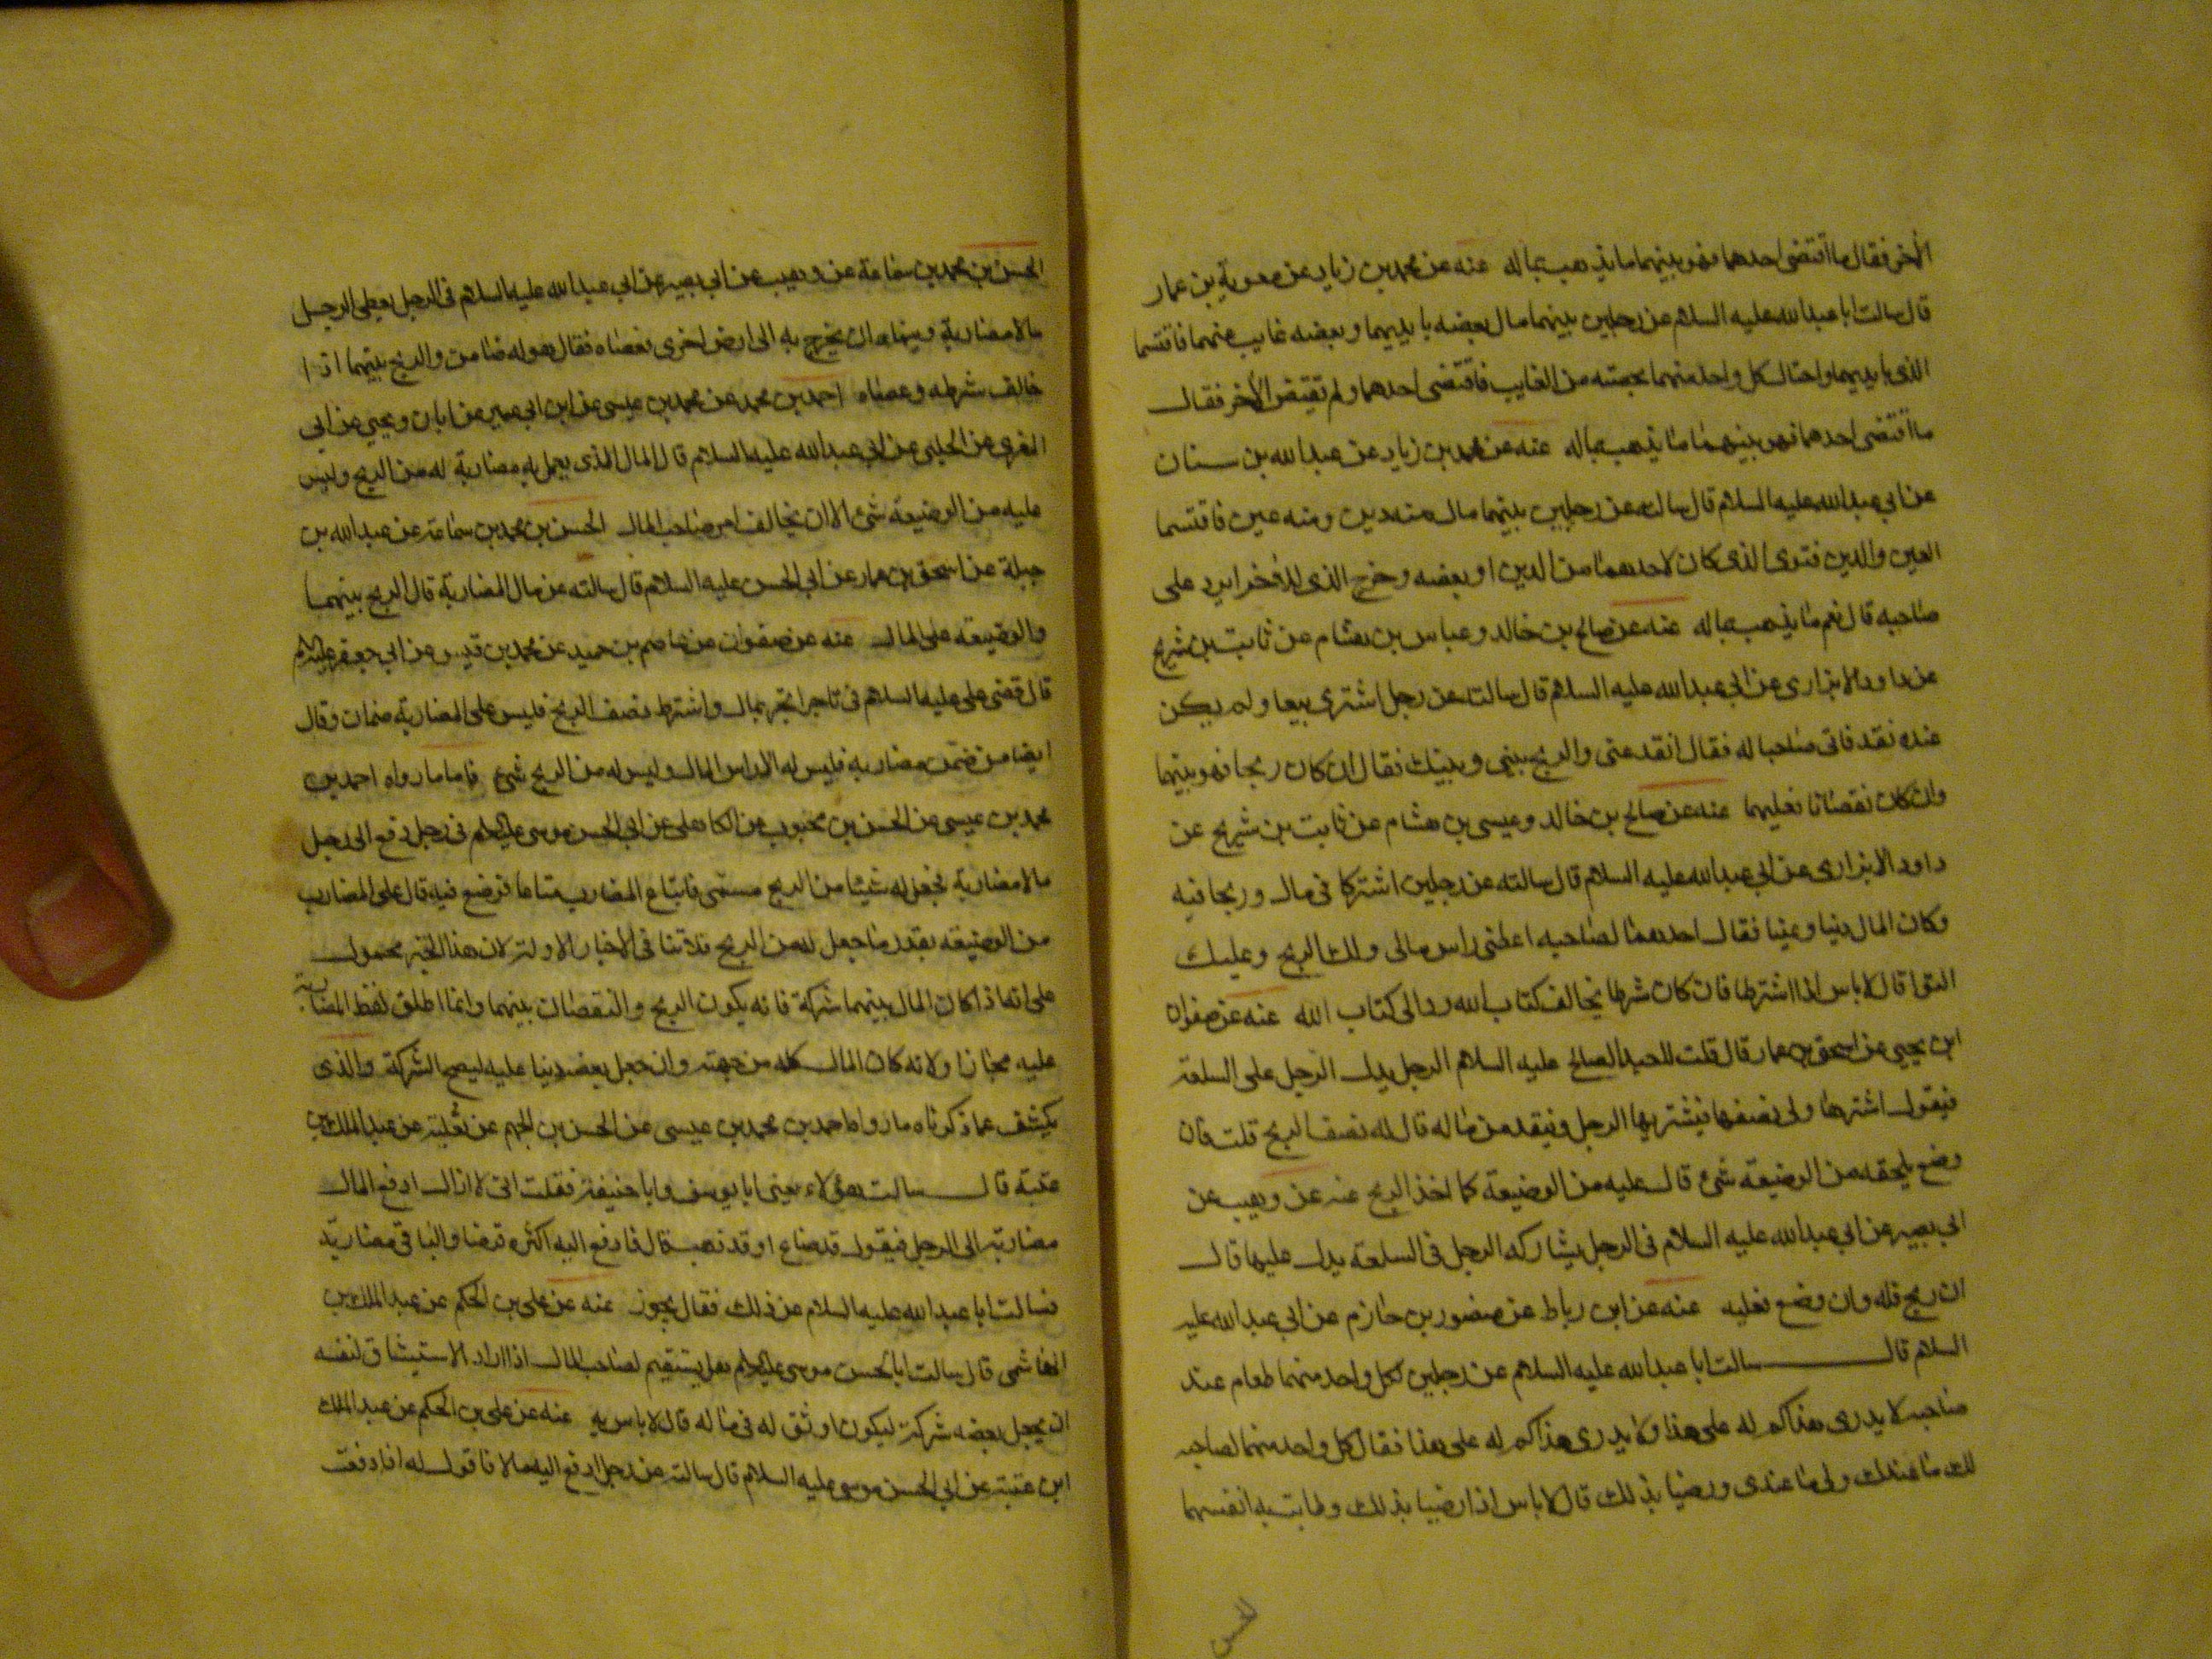 الأخر فقال ما اقتضى احدهما فهو بينهما ما يذهب بماله عنه عن محمد بن زياد عن معوية بن عمار
قال سالت ابا عبد الله عليه السلام عن رجلين بينهما مال بعضه بايديهما وبعضه غايب عنهما فاقتسما
الذى بايديهما واحتال كل واحد منهما بحصته من الغايب فاقتضى احدهما ولم يقتض الأخر فقال
ما اقتضى احدهما فهو بينهما ما يذهب بماله عنه عن محمد بن زياد عن عبد الله بن سنان
عن ابى عبد الله عليه السلام قال سالته عن رجلين بينهما مال منه دين ومنه عين فاقتسما
العين والدين فتوى الذى كان لاحدهما من الدين او بعضه وخرج الذى للاخر ايرد على
صاحبه قال نعم ما يذهب بماله عنه عن صالح بن خالد وعباس بن هشام عن ثابت بن شريح
عن داود الابزارى عن ابى عبد الله عليه السلام قال سالته عن رجل اشترى بيعا ولم يكن
عنده نقد فاتى صاحبا له فقال انقد عنى والربح بينى وبينك فقال ان كان ربحا فهو بينهما
وان كان نقصانا فعليهما عنه عن صالح بن خالد وعيسى بن هشام عن ثابت بن شريح عن
داود الابزارى عن ابى عبد الله عليه السلام قال سالته عن رجلين اشتركا فى مال وربحا فيه
وكان المال دينا وعينا فقال احدهما لصاحبه اعطنى راس مالى ولك الربح وعليك
التوا قال لا باس اذا اشترطا فان كان شرطا يخالف كتاب الله رد الى كتاب الله عنه عن صفوان
ابن يحيى عن اسحق بن عمار قال قلت للعبد الصالح عليه السلام الرجل يدل الرجل على السلعة
فيقول اشترها ولى نصفها فيشتريها الرجل وينقد من ماله قال له نصف الربح قلت فان
وضع يلحقه من الوضيعة شئ قال عليه من الوضيعة كما اخذ الربح عنه عن وهيب عن
ابى بصير عن ابى عبد الله عليه السلام فى الرجل يشاركه الرجل فى السلعة يدل عليها قال
ان ربح فله وان وضع فعليه عنه عن ابن رباط عن منصور بن حازم عن ابى عبد الله عليه
السلام قال سالت ابا عبد الله عليه السلام عن رجلين لكل واحد منهما طعام عند
صاحبه لا يدرى هذا كم له على هذا ولا يدرى هذا كم له على هذا فقال كل واحد منهما لصاحبه
لك ما عندك ولى ما عندى ورضيا بذلك قال لا باس اذا رضيا بذلك وطابت به انفسهما
الحسن
الحسن بن محمد بن سماعة عن وهيب عن ابى بصير عن ابى عبد الله عليه السلام فى الرجل يعطى الرجل
مالا مضاربة وينهاه ان يخرج به الى ارض اخرى فعصاه فقال هو له ضامن والربح بينهما اذا
خالف شرطه وعصاه احمد بن محمد عن محمد بن عيسى عن ابن ابى عمير عن ابان ويحيى عن ابى
المغرى عن الحلبى عن ابى عبد الله عليه السلام قال المال الذى يعمل به مضاربة له من الربح وليس
عليه من الوضيعة شئ الا ان يخالف امر صاحب المال الحسن بن محمد بن سماعة عن عبد الله بن
جبلة عن اسحق بن عمار عن ابى الحسن عليه السلام قال سالته عن مال المضاربة قال الربح بينهما
والوضيعة على المال عنه عن صفوان عن عاصم بن حميد عن محمد بن قيس عن ابى جعفر عليه السلم
قال قضى على عليه السلام فى تاجر اتجر بمال واشترط نصف الربح فليس على المضاربة ضمان وقال
ايضا من ضمن مضاربه فليس له الا راس المال وليس له من الربح شئ فاما ما رواه احمد بن
محمد بن عيسى عن الحسن بن محبوب عن الكاهلى عن ابى الحسن موسى عليه السلم فى رجل دفع الى رجل
مالا مضاربة فجعل له شيئا من الربح مسمى فابتاع المضارب متاعا فوضع فيه قال على المضارب
من الوضيعة بقدر ما جعل له من الربح فلا تنا فى الاخبار الاولة لان هذا الخبر محمول
على انه اذا كان المال بينهما شركة فانه يكون الربح والنقصان بينهما وانما اطلق لفظ المضاربة
عليه مجازا ولانه كان المال كله من جهته وان جعل بعضه دينا عليه ليصح الشركة والذى
يكشف عما ذكرناه ما رواه احمد بن محمد بن عيسى عن الحسن بن الجهم عن ثعلبة عن عبد الملك بن
عتبة قال سالت هؤلاء يعنى ابا يوسف وابا حنيفة فقلت انى لا ازال ادفع المال
مضاربة الى الرجل فيقول قد ضاع او قد ذهب قال فادفع اليه اكثره قرضا والباقى مضاربة
فسالت ابا عبد الله عليه السلام عن ذلك فقال يجوز عنه عن على بن الحكم عن عبد الملك بن
الهاشمى قال سالت ابا الحسن موسى عليه السلم هل يستقيم لصاحب المال اذا اراد الاستيثاق لنفسه
ان يجعل بعضه شركة ليكون اوثق له فى ماله قال لا باس به عنه عن على بن الحكم عن عبد الملك
ابن عتبة عن ابى الحسن موسى عليه السلام قال سالته عن رجل ادفع اليه مالا فاقول له اذا دفعت